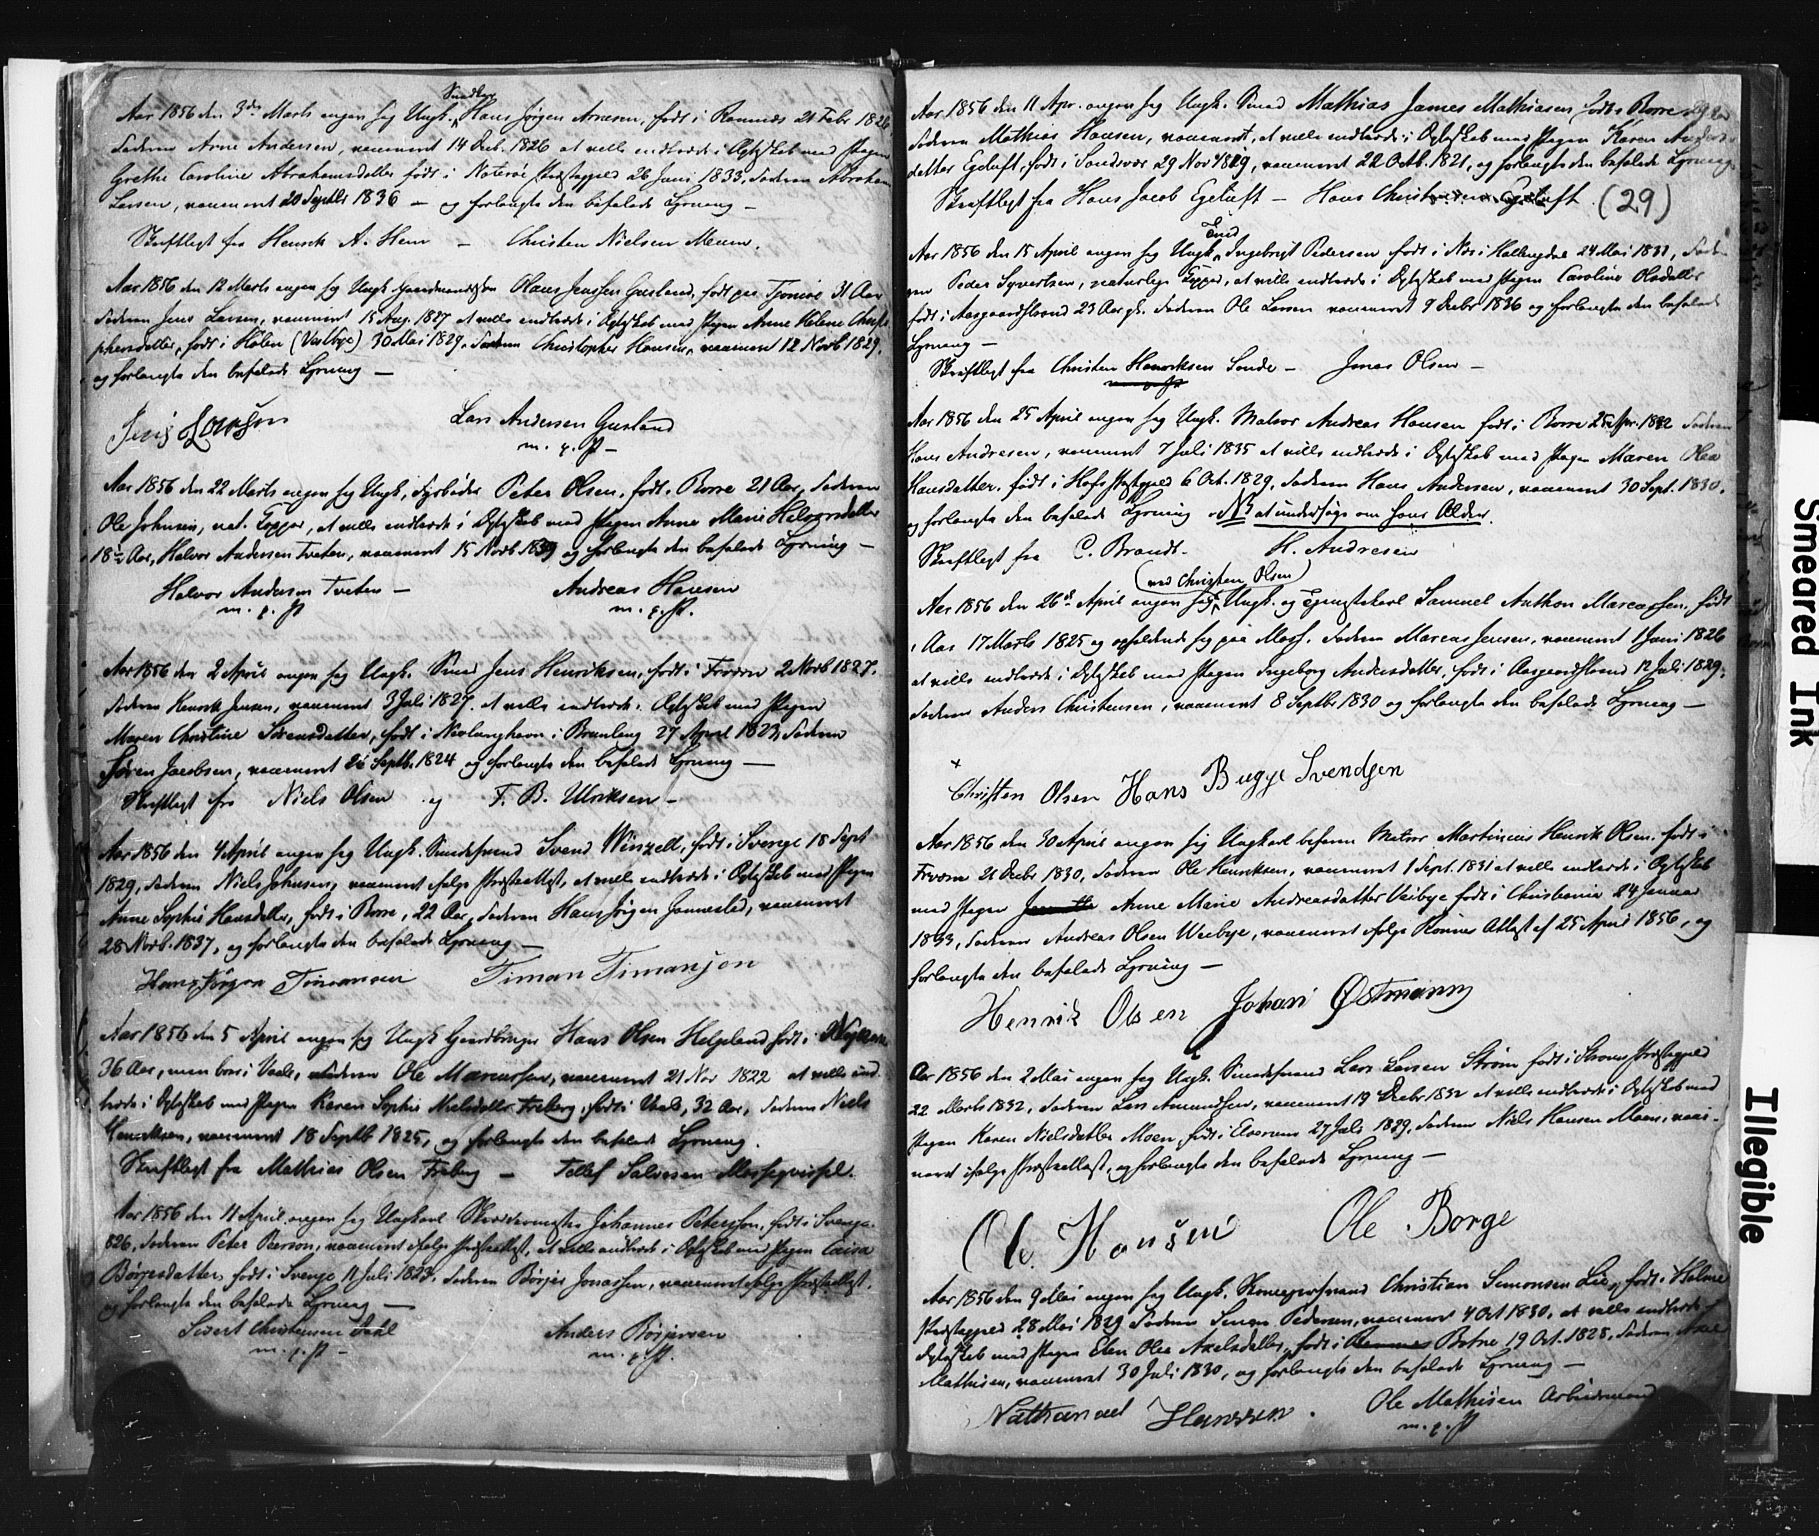 Snedker
Aar 1856 den 3die Marts angav sig Ungk. Hans Jørgen Arnesen, født i Ramnæs 21 Febr 1826
Faderen Arne Andersen, vaccineret 14 Dec. 1826 at ville indtræde i Ægteskab med Pigen
Grethe Caroline Abrahamsdatter født i Præstegjeld 26 Juni 1833, Faderen Abraham
Larsen, vaccineret 20 Septbr 1836 – og forlangte den befalede Lysning –
Skriftligt fra Henrik A. Hem – Christen Nielsen
Aar 1856 den 12 Marts angav sig Ungk. Gaardmandssøn Claus Jenssen Gusland, født paa 31 Aar
Faderen Jens Larsen, vaccineret 15 Aug. 1827 at ville indtræde i Ægteskab med Pigen Anne Helene Christo-
phersdatter, født i Hølen (Vestbye) 30 Mai 1829. Faderen Christopher Hansen, vaccineret 12 Novb 1829.
og forlangte den befalede Lysning –
Lars Andersen Gusland
m. p. P –
Aar 1856 den 22 Marts angav sig Ungk. Fyrbøder Peter Olsen, født i Borre 21 Aar, Faderen
Ole Johnsen, nat. Kopper, at ville indtræde i Ægteskab med Pigen Anne Marie Halvorsdatter
18½ Aar, Halvor Andersen Tveten, vaccineret 15 Novb 1839 og forlangte den befalede Lysning –
Halvor Andersen Tveten – Andreas Hansen
m. p. P m. p. P.
Aar 1856 den 2 April angav sig Ungk. Smed Jens Henriksen, født i 2 Novb 1827.
Faderen Henrik Jensen, vaccineret 3 Juli 1829. at ville indtræde i Ægteskab med Pigen
Maren Christine Sørensdatter, født i Nevlunghavn i Brunlaug 27 April 1823, Faderen
Søren Jacobsen, vaccineret 26 Septb. 1824 og forlangte den befalede Lysning –
Skriftligt fra Niels Olsen og F. B. Ulriksen –
Aar 1856 den 4 April angav sig Ungk. Smedesvend Svend Winzell, født i Sverige 18 Sept
1829, Faderen Niels Johnsen, vaccineret ifølge Præsteattest, at ville indtræde i Ægteskab med Pigen
Anne Sophie Hansdatter, født i Borre, 22 Aar, Faderen Hans Jørgen vaccineret
28 Novb. 1837, og forlangte den befalede Lysning –
Hans Jørgen Timansen Timan Timansen
Aar 1856 den 5 April angav sig Ungk Gaardbruger Hans Olsen Helgeland født i
36 Aar, men boer i Vaale, Faderen Ole Marcussen, vaccineret 21 Nov 1822 at ville ind-
træde i Ægteskab med Pigen Karen Sophie Nielsdatter Freberg, født i Vaale, 32 Aar, Faderen Niels
Henriksen, vaccineret 18 Septb 1825, og forlangte den befalede Lysning.
Skriftligt fra Mathias Olsen Freberg – Tollef Salvesen
Aar 1856 den 11 April angav sig Ungkarl Skræddermester Johannes Petersson, født i Sverige
1826, Faderen Peter Persson, vaccineret ifølge Præsteattest, at ville indtræde i Ægteskab med Pigen Caisa
Børjesdatter, født i Sverige 11 Juli 1823. Faderen Børjes Jonassen, vaccineret ifølge Præsteattest.
og forlangte den befalede Lysning –
Sivert Christensen Dahl Anders Børjesson
m. p. P – m. p. P.
Aar 1856 den 11 Apr. angav sig Ungk. Smed Mathias James Mathiasen født i Borre 29 Aar
Faderen Mathias Hansen, vaccineret, at ville indtræde i Ægteskab med Pigen Karen Anders-
datter Egeluft, født i Sandsvær 29 Nov 1819, vaccineret 22 Octb. 1821, og forlangte den befalede Lysning
Skriftligt fra Hans Jacob Egeluft – Hans Christensen Egeluft. (29)
Aar 1856 den 15 April angav sig Ungk. Ingebrigt Pedersen født i Næs i Hallingdal 24 Mai 1831, Fader
en Peder Syvertsen, naturlige Kopper, at ville indtræde i Ægteskab med Pigen Caroline Olsdatter
født i Aasgaardstrand 23 Aar gl. Faderen Ole Larsen vaccineret 9 Decbr 1836 og forlangte den befalede
Lysning –
Skriftligt fra Christen Henriksen Sande – Jonas Olsen –
Aar 1856 den 25 April angav sig Ungk. Matros Andreas Hansen født i Borre 25 Apr. 1832 Faderen
Hans Andresen, vaccineret 7 Juli 1835 at ville indtræde i Ægteskab med Pigen Maren Olea
Hansdatter. født i Hofs Præstegjeld 6 Oct. 1829. Faderen Hans Andersen, vaccineret 30 Sept. 1830.
og forlangte den befalede Lysning NB at undersøge om hans Alder.
Skriftligt fra C. Brandt. H. Andresen
(ved Christen Olsen)
Aar 1856 den 26de April angav sig Ungk. og Tjenestekarl Samuel Anthon Marcussen, født
i Aas 17 Marts 1825 og opholdende sig paa Moss. Faderen Marcus Jensen, vaccineret 1 Juni 1826
at ville indtræde i Ægteskab med Pigen Ingeborg Andersdatter, født i Aasgaardstrand 12 Juli 1829.
Faderen Anders Christensen, vaccineret 8 Septbr 1830 og forlangte den befalede Lysning –
Christen Olsen Hans Bugge Svendsen
Aar 1856 den 30 April angav sig Ungkarl befaren Matros Martinius Henrik Olsen. født i
21 Decbr 1830, Faderen Ole Henriksen, vaccineret 1 Sept. 1831 at ville indtræde i Ægteskab
med Pigen Anne Marie Andreasdatter Veibye født i Christiania 24 Januar
1833, Faderen Andreas Olsen Weebye, vaccineret ifølge Attest af 25 April 1856, og
forlangte den befalede Lysning –
Henrik Olsen Johan Østmann
Aar 1856 den 2 Mai angav sig Ungk. Smedesvend Lars Larsen Strøm født i Præstegjeld
22 Marts 1832, Faderen Lars Amundsen, vaccineret 19 Decbr 1832 at ville indtræde i Ægteskab med
Pigen Karen Nielsdatter Moen, født i Elverum 27 Juli 1829. Faderen Niels Hansen Moen, vacci-
neret ifølge Præsteattest, og forlangte den befalede Lysning –
Ole Hansen Ole Borge
Aar 1856 den 9 Mai angav sig Ungk. Christian Simonsen Lie, født i
Præstegjeld 28 Mai 1829 Faderen Simon Pedersen, vaccineret 4 Oct 1830, at ville indtræde i
Ægteskab med Pigen Elen Olea Axelsdatter, født i Botne 19 Oct. 1828, Faderen Axel
Mathisen, vaccineret 30 Juli 1830, og forlangte den befalede Lysning –
Nathanael Hanssen. Ole Mathisen Arbeidsmand
m. p. P
Smeared Ink
Illegible